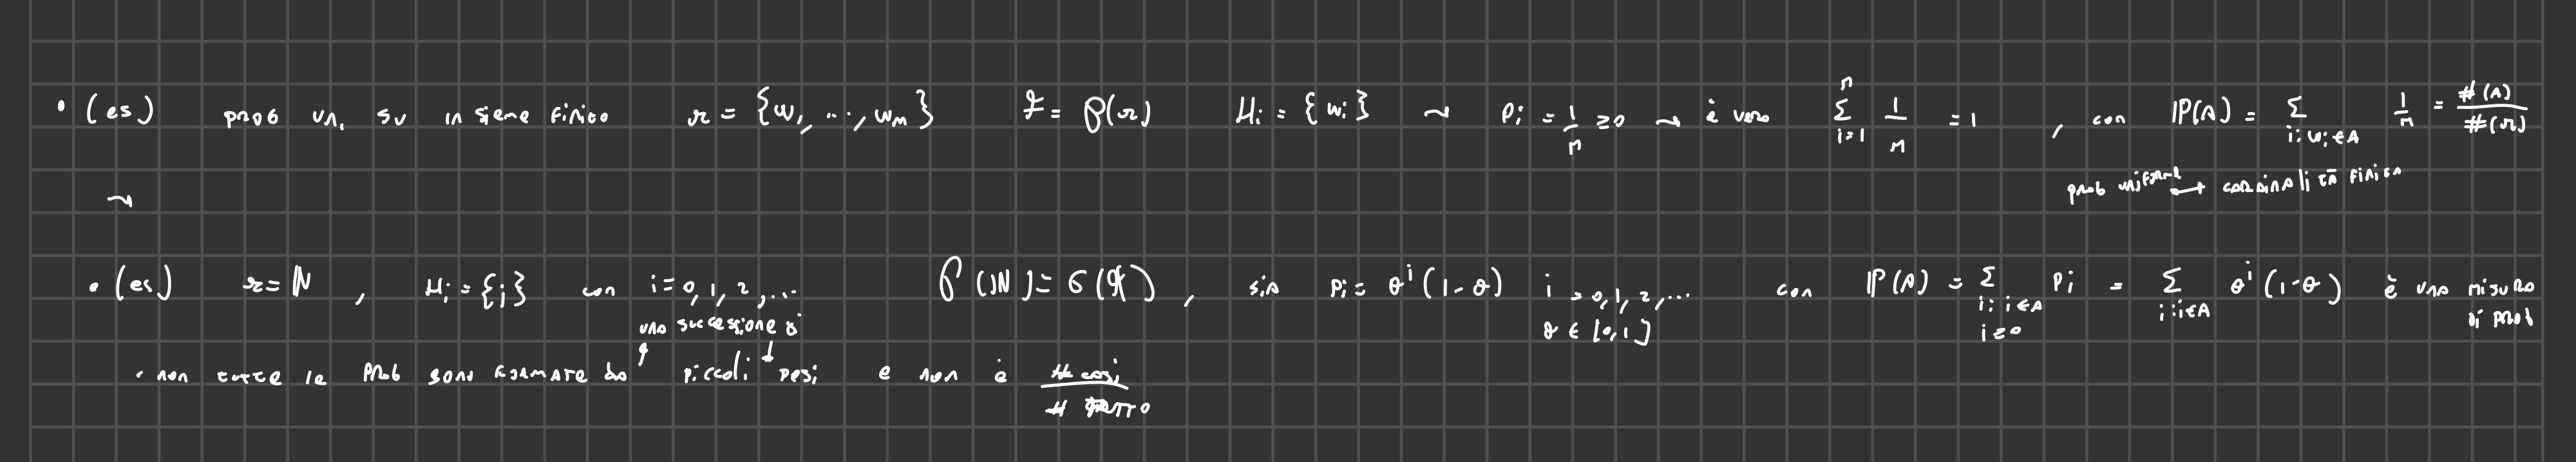 • (es) prob un. su insieme finito Ω = {ω₁, ..., ωₙ} 𝓕 = 𝒫(Ω) Hᵢ = {ωᵢ} ⇝ pᵢ = 1/n ≥ 0 ⇝ è vero ∑_{i=1}^{n} 1/n = 1 , con ℙ(A) = ∑_{i: ωᵢ ∈ A} 1/n = #(A)/#(Ω)
prob uniforme ⟼ cardinalità finita
⇝
• (es) Ω = ℕ , Hᵢ = {i} con i = 0, 1, 2, ... 𝒫(ℕ) = σ(𝓗) , sia pᵢ = θⁱ(1-θ) i = 0, 1, 2, ... con ℙ(A) = ∑_{i: i∈A, i≥0} pᵢ = ∑_{i: i∈A} θⁱ(1-θ) è una misura di prob
θ ∈ [0,1]
una successione di
• non tutte le prob sono formate da piccoli pesi e non è # casi / # tutto